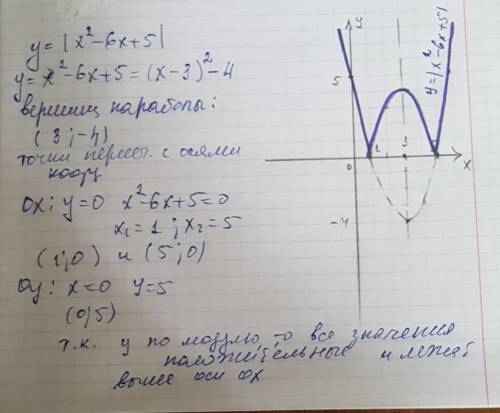 y = |x² - 6x + 5|
y = x² - 6x + 5 = (x - 3)² - 4
вершина параболы:
(3 ; -4)
точки перес. с осями
коорд
ox: y = 0 x² - 6x + 5 = 0
x₁ = 1 ; x₂ = 5
(1; 0) и (5; 0)
oy: x = 0 y = 5
(0; 5)
т.к. y по модулю, то все значения
положительные и лежат
выше оси ox
y
5
y = |x² - 6x + 5|
0
1
3
x
-4